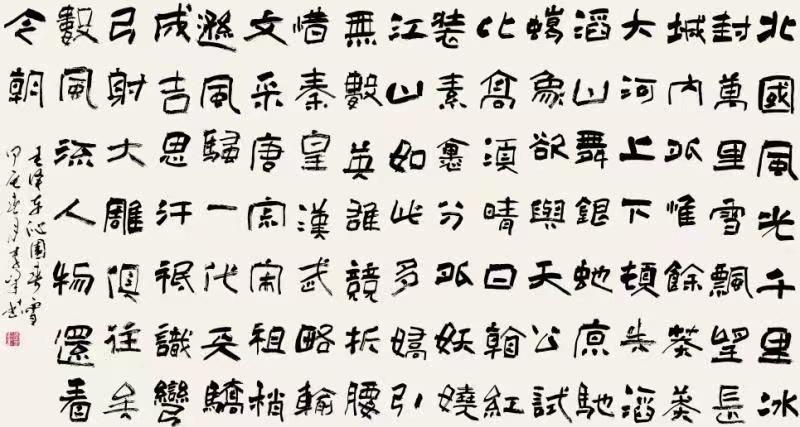 北國風光千里冰
封萬里雪飄望長
城內外惟餘莽莽
大河上下頓失滔
滔山舞銀蛇原馳
蠟象欲與天公試
比高須晴日看紅
裝素裹分外妖嬈
江山如此多嬌引
無數英雄競折腰
惜秦皇漢武略輸
文采唐宗宋祖稍
遜風騷一代天驕
成吉思汗祇識彎
弓射大雕俱往矣
數風流人物還看
今朝
毛澤東沁園春雪
甲辰